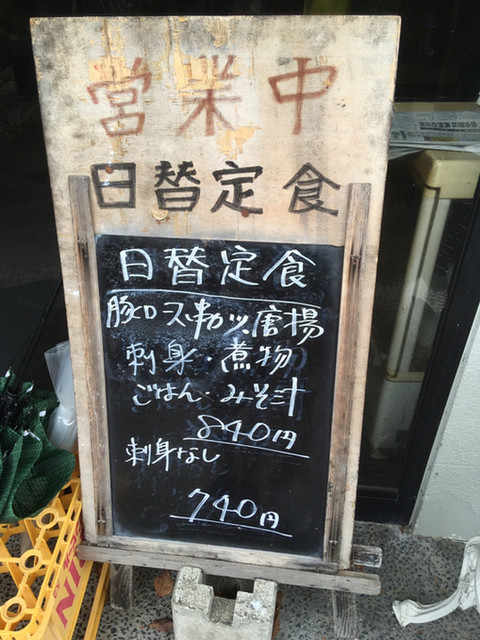 営業中
日替定食
日替定食
豚ロース串カツ、唐揚
刺身・煮物
ごはん・みそ汁
840円
刺身なし
740円